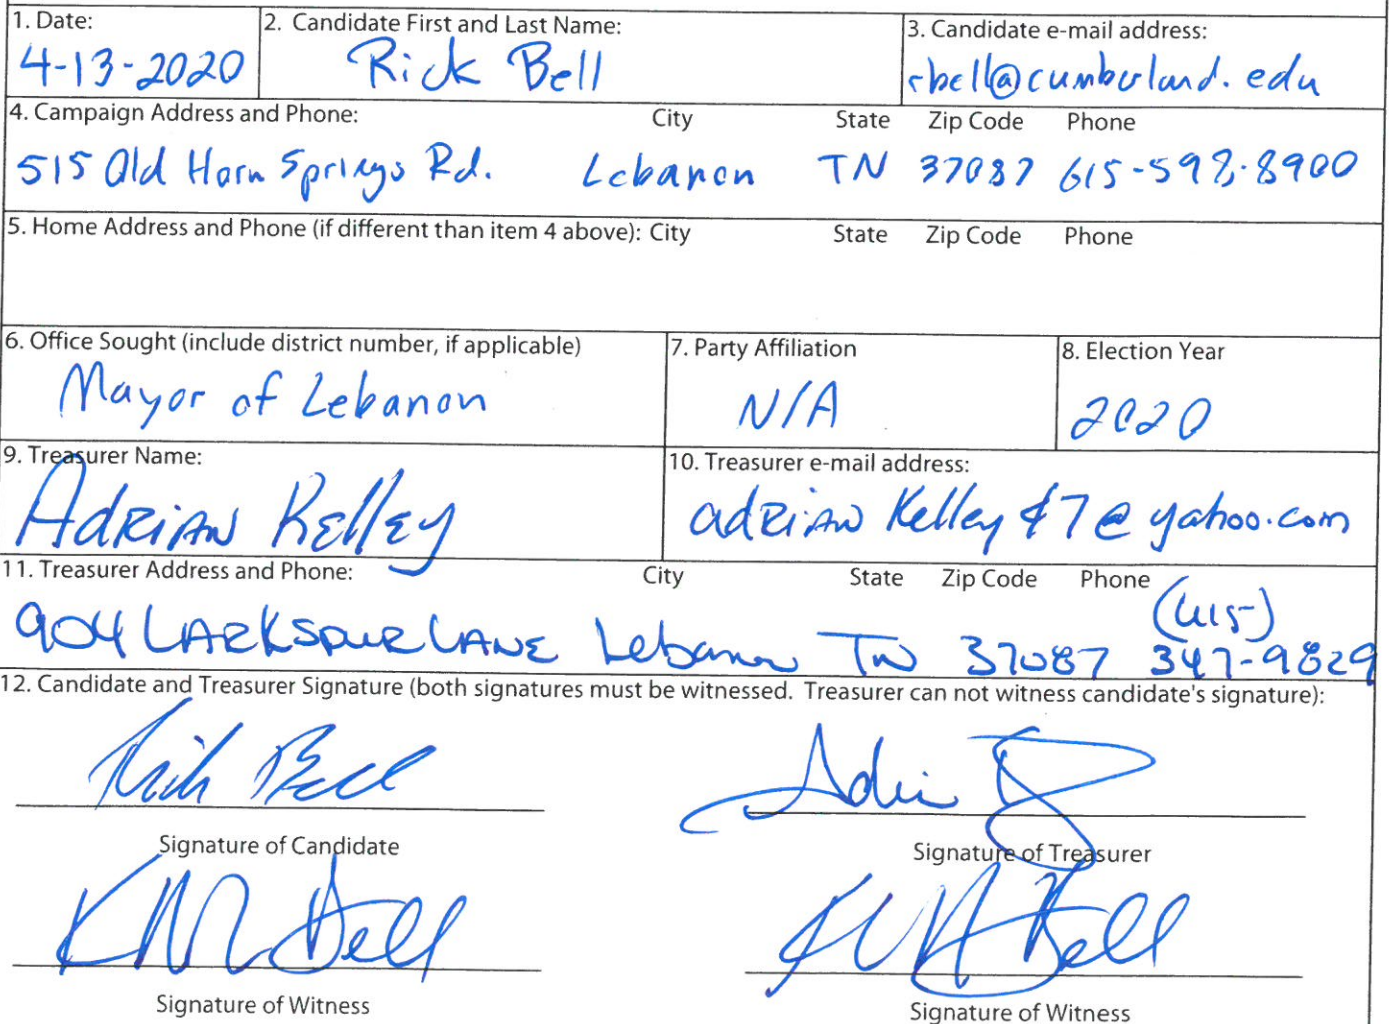 1. Date: 2. Candidate First and Last Name: 3. Candidate e-mail address:
4-13-2020 Rick Bell rbell@cumberland.edu
4. Campaign Address and Phone: City State Zip Code Phone
515 Old Horn Springs Rd. Lebanon TN 37087 615-598-8900
5. Home Address and Phone (if different than item 4 above): City State Zip Code Phone
6. Office Sought (include district number, if applicable) 7. Party Affiliation 8. Election Year
Mayor of Lebanon N/A 2020
9. Treasurer Name: 10. Treasurer e-mail address:
Adrian Kelley
11. Treasurer Address and Phone: City State Zip Code Phone
904 Larkspur Lane Lebanon TN 37087 (615-) 347-9829
12. Candidate and Treasurer Signature (both signatures must be witnessed. Treasurer can not witness candidate's signature):
Rick Bell
Signature of Candidate Signature of Treasurer
Signature of Witness Signature of Witness